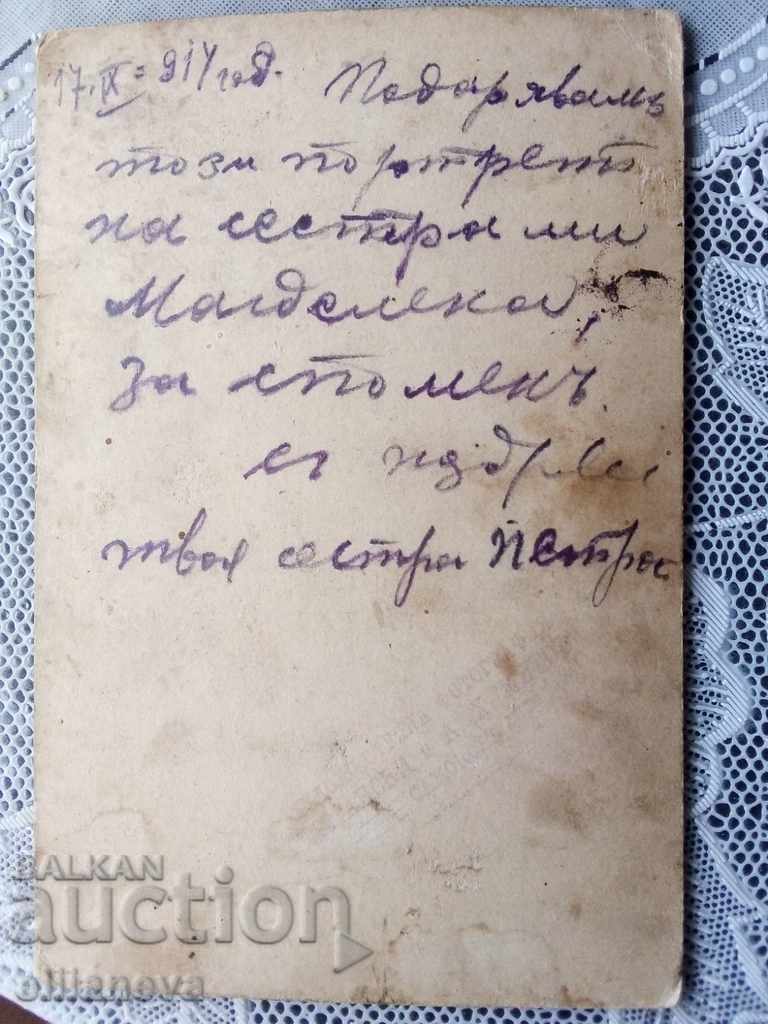 17.IX = 914 год. Подарявамъ
този портретъ
на сестра ми
Магделена,
за споменъ.
твоя сестра Петра
BALKAN
auction
ollianova